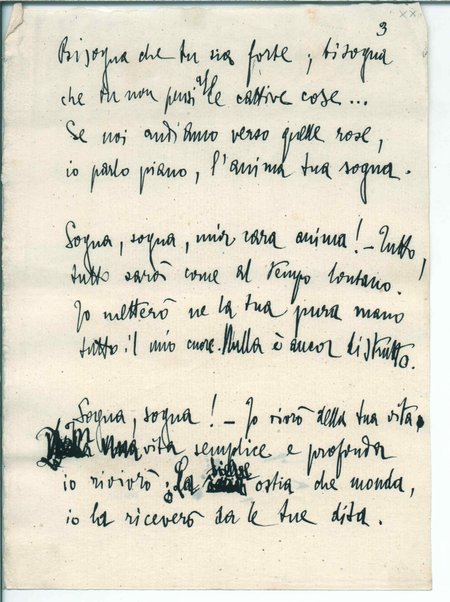 3
Bisogna che tu sia forte, bisogna
che tu non pensi a le cattive cose...
Se noi andiamo verso quelle rose,
io parlo piano, l'anima tua sogna.
Sogna, sogna, mia cara anima! - Tutto,
tutto sarà come al tempo lontano.
Io metterò ne la tua pura mano
tutto il mio cuore. Nulla è ancor distrutto.
Sogna, sogna! - Io vivrò della tua vita.
una vita semplice e profonda
io rivivrò. La lieve ostia che monda,
io la riceverò da le tue dita.